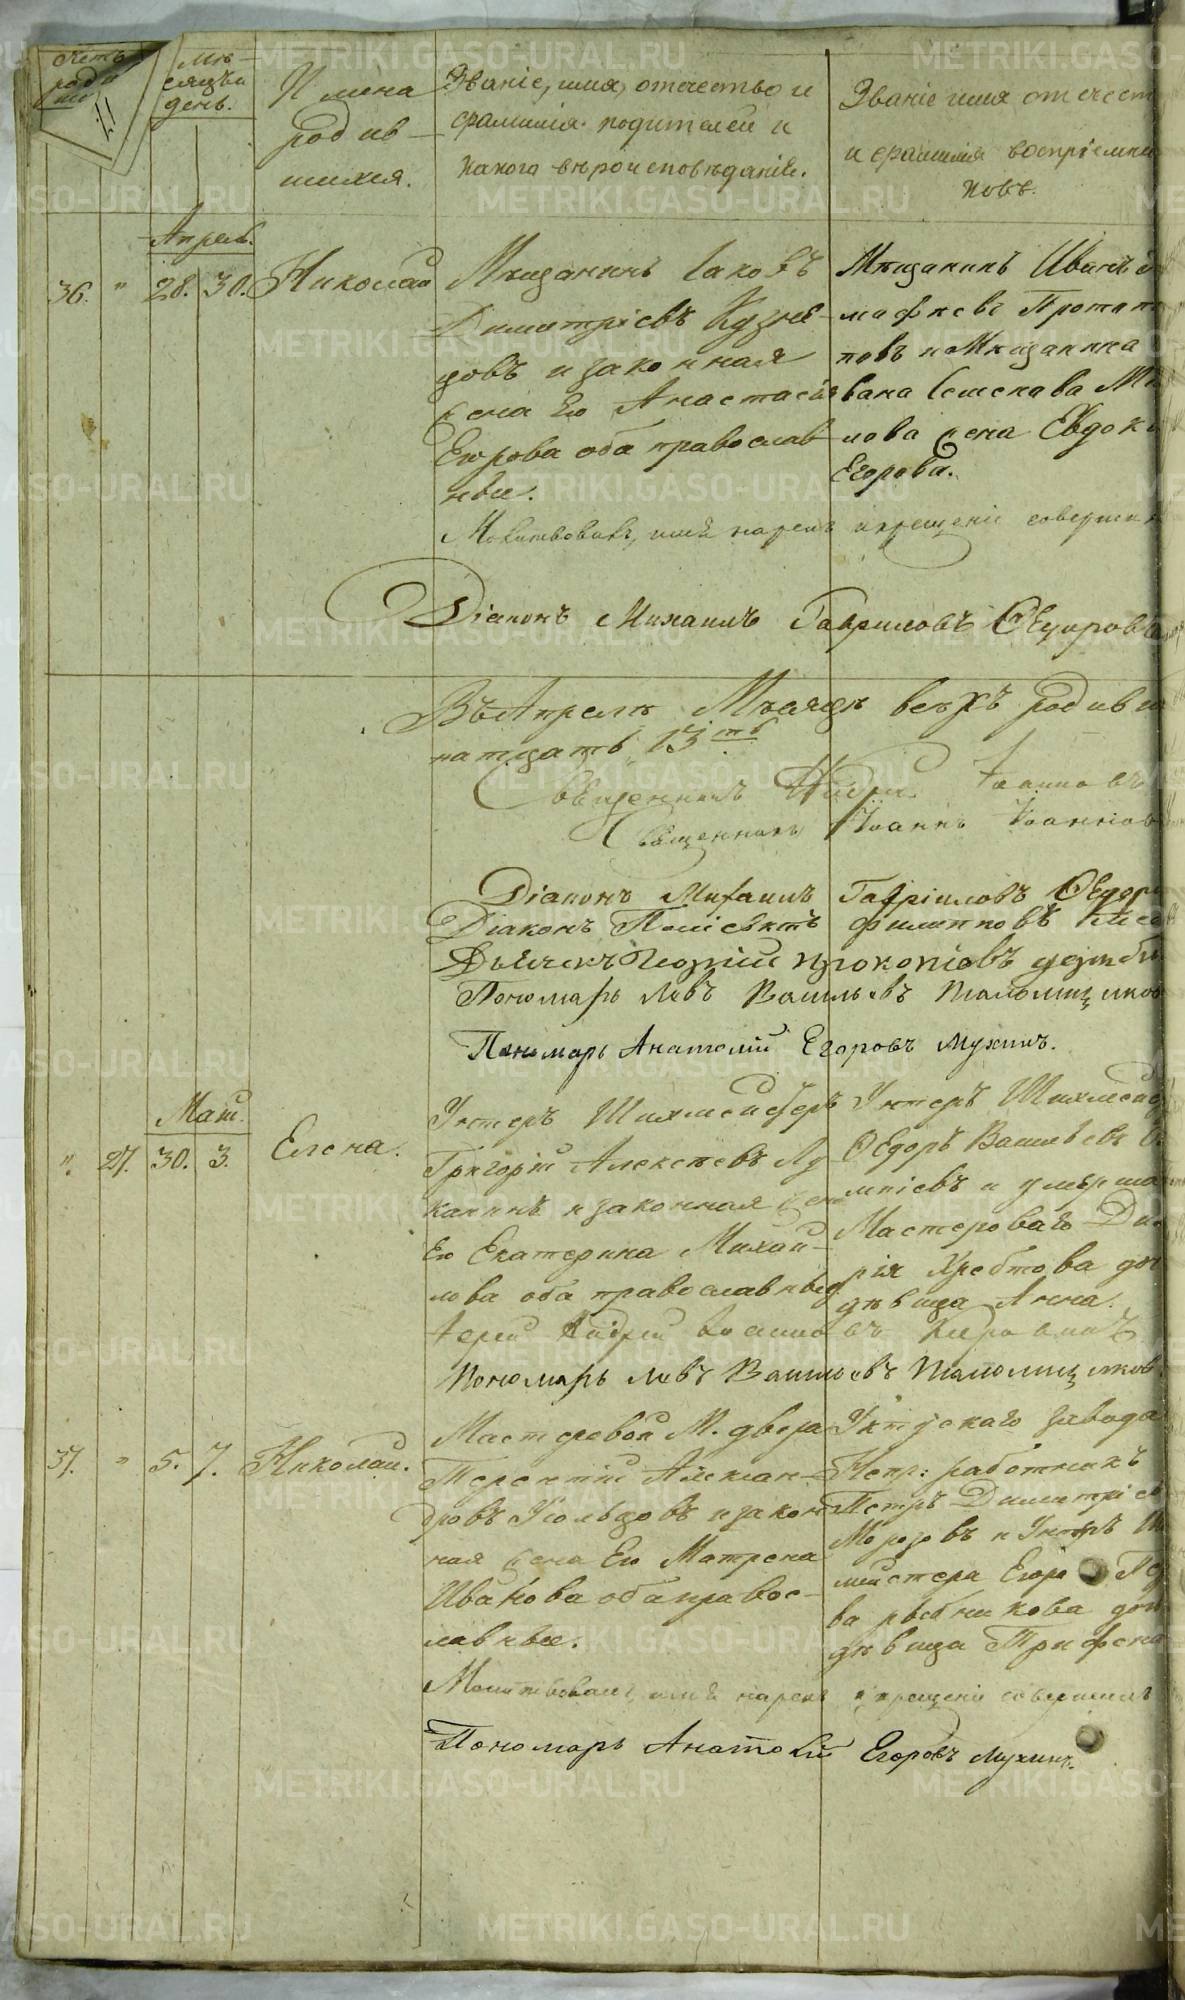 Счетъ
роди
Мѣ-
сяцъ и
день.
Имена
родив-
шихся.
Званіе, имя, отечество и
фамилія родителей и
какого вѣроисповѣданія.
Званіе имя отечест
и фамилія воспріемни
ковъ.
Апрель.
36. " 28. 30. Николай
Мѣщанинъ Іаковъ
Димитріевъ Кузне-
цовъ и законная
жена Его Анастасія
Егорова оба православ-
ные.
Мѣщанинъ Иванъ
мофѣевъ Протопо
повъ и Мѣщанина
вана Семенова
нова жена Евдокі
Егорова.
Молитвовалъ, имя нарекъ и крещеніе совершил
Діаконъ Михаилъ Гавриловъ Ѳедоровъ
Въ Апрелѣ Мѣсяцѣ всѣхъ родивши
натцать 13ть
Священникъ Андрей Іоанновъ
Священникъ Іоаннъ Іоанновъ
Діаконъ Михаилъ Гавріиловъ Ѳедоро
Діаконъ Поліевктъ Филипповъ
Дьячекъ Георгій Прокопіовъ
Пономарь Левъ Васильевъ Топоищиков
Пономарь Анатолій Егоровъ Мухинъ.
Май.
". 27. 30. 3. Елена.
Унтеръ Шихмейстеръ
Григорій Алексѣевъ Лу-
канинъ и законная жена
Его Екатерина Михай-
лова оба православные
Унтеръ Шихмейс
Ѳедоръ Васильевъ
мпіевъ и умерша
Мастероваго Дми
рія Хребтова до
дѣвица Анна.
Іерей Андрей Іоанновъ
Пономарь Левъ Васильевъ Топоищиков
37. " 5. 7. Николай.
Мастеровой М. двора
Терентій Алексан-
дровъ Усольцовъ и закон
ная жена Его Матрена
Иванова оба право-
славные.
Уктускаго завода
Непр: работникъ
Петръ Димитріев
Морозовъ и Унтеръ Ш
мейстера Егора Пе
ва рыбникова доч
дѣвица Трифена
Молитвовалъ, имя нарекъ и крещеніе совершилъ
Пономарь Анатолій Егоровъ Мухинъ.
METRIKI.GASO-URAL.RU